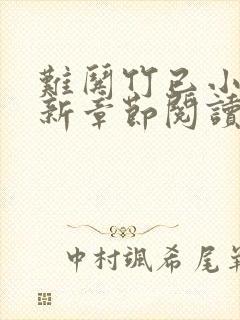 難閑竹已小
新章節閱讀
中村颯希尾